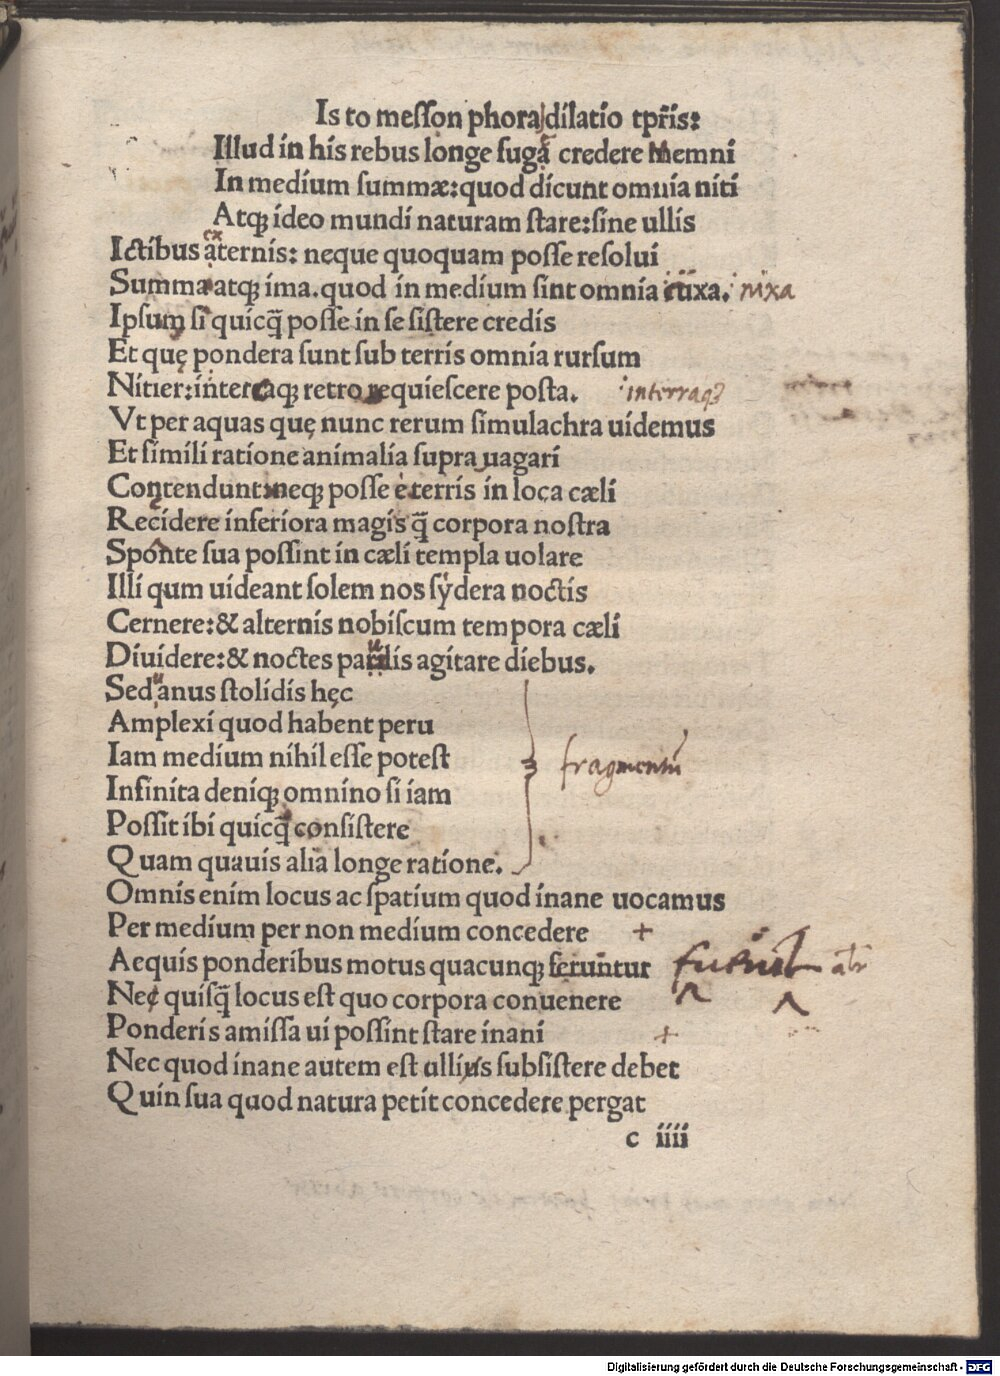 Is to meſſon phora dilatio tp̄ris:
Illud in his rebus longe fuga credere Memni
In medium ſummæ: quod dicunt omnia niti
Atqꝫ ideo mundi naturam ſtare: ſine ullis
ex
Ictibus aternis: neque quoquam poſſe reſolui
Summa atqꝫ ima. quod in medium ſint omnia rixa. nixa
Ipſum ſi quicq̄ poſſe in ſe ſiſtere credis
Et quę pondera ſunt ſub terris omnia rurſum
Nitier: interraqꝫ retro requieſcere poſta. interraqꝫ
Vt per aquas quę nunc rerum ſimulachra uidemus
Et ſimili ratione animalia ſupra uagari
Contendunt: neqꝫ poſſe e terris in loca cæli
Recidere inferiora magis q̄ corpora noſtra
Sponte ſua poſſint in cæli templa uolare
Illi qum uideant ſolem nos ſydera noctis
Cernere: & alternis nobiſcum tempora cæli
Diuidere: & noctes parilis agitare diebus.
Sed uanus ſtolidis hęc
Amplexi quod habent peru
Iam medium nihil eſſe poteſt
fragmentū
Infinita deniqꝫ omnino ſi iam
Poſſit ibi quicq̄ conſiſtere
Quam quauis alia longe ratione.
Omnis enim locus ac ſpatium quod inane uocamus
Per medium per non medium concedere +
Aequis ponderibus motus quacunqꝫ feruntur
Nec quiſq̄ locus eſt quo corpora conuenere
Ponderis amiſſa ui poſſint ſtare inani +
Nec quod inane autem eſt ullius ſubſiſtere debet
Quin ſua quod natura petit concedere pergat
c iiii
Digitalisierung gefördert durch die Deutsche Forschungsgemeinschaft - DFG